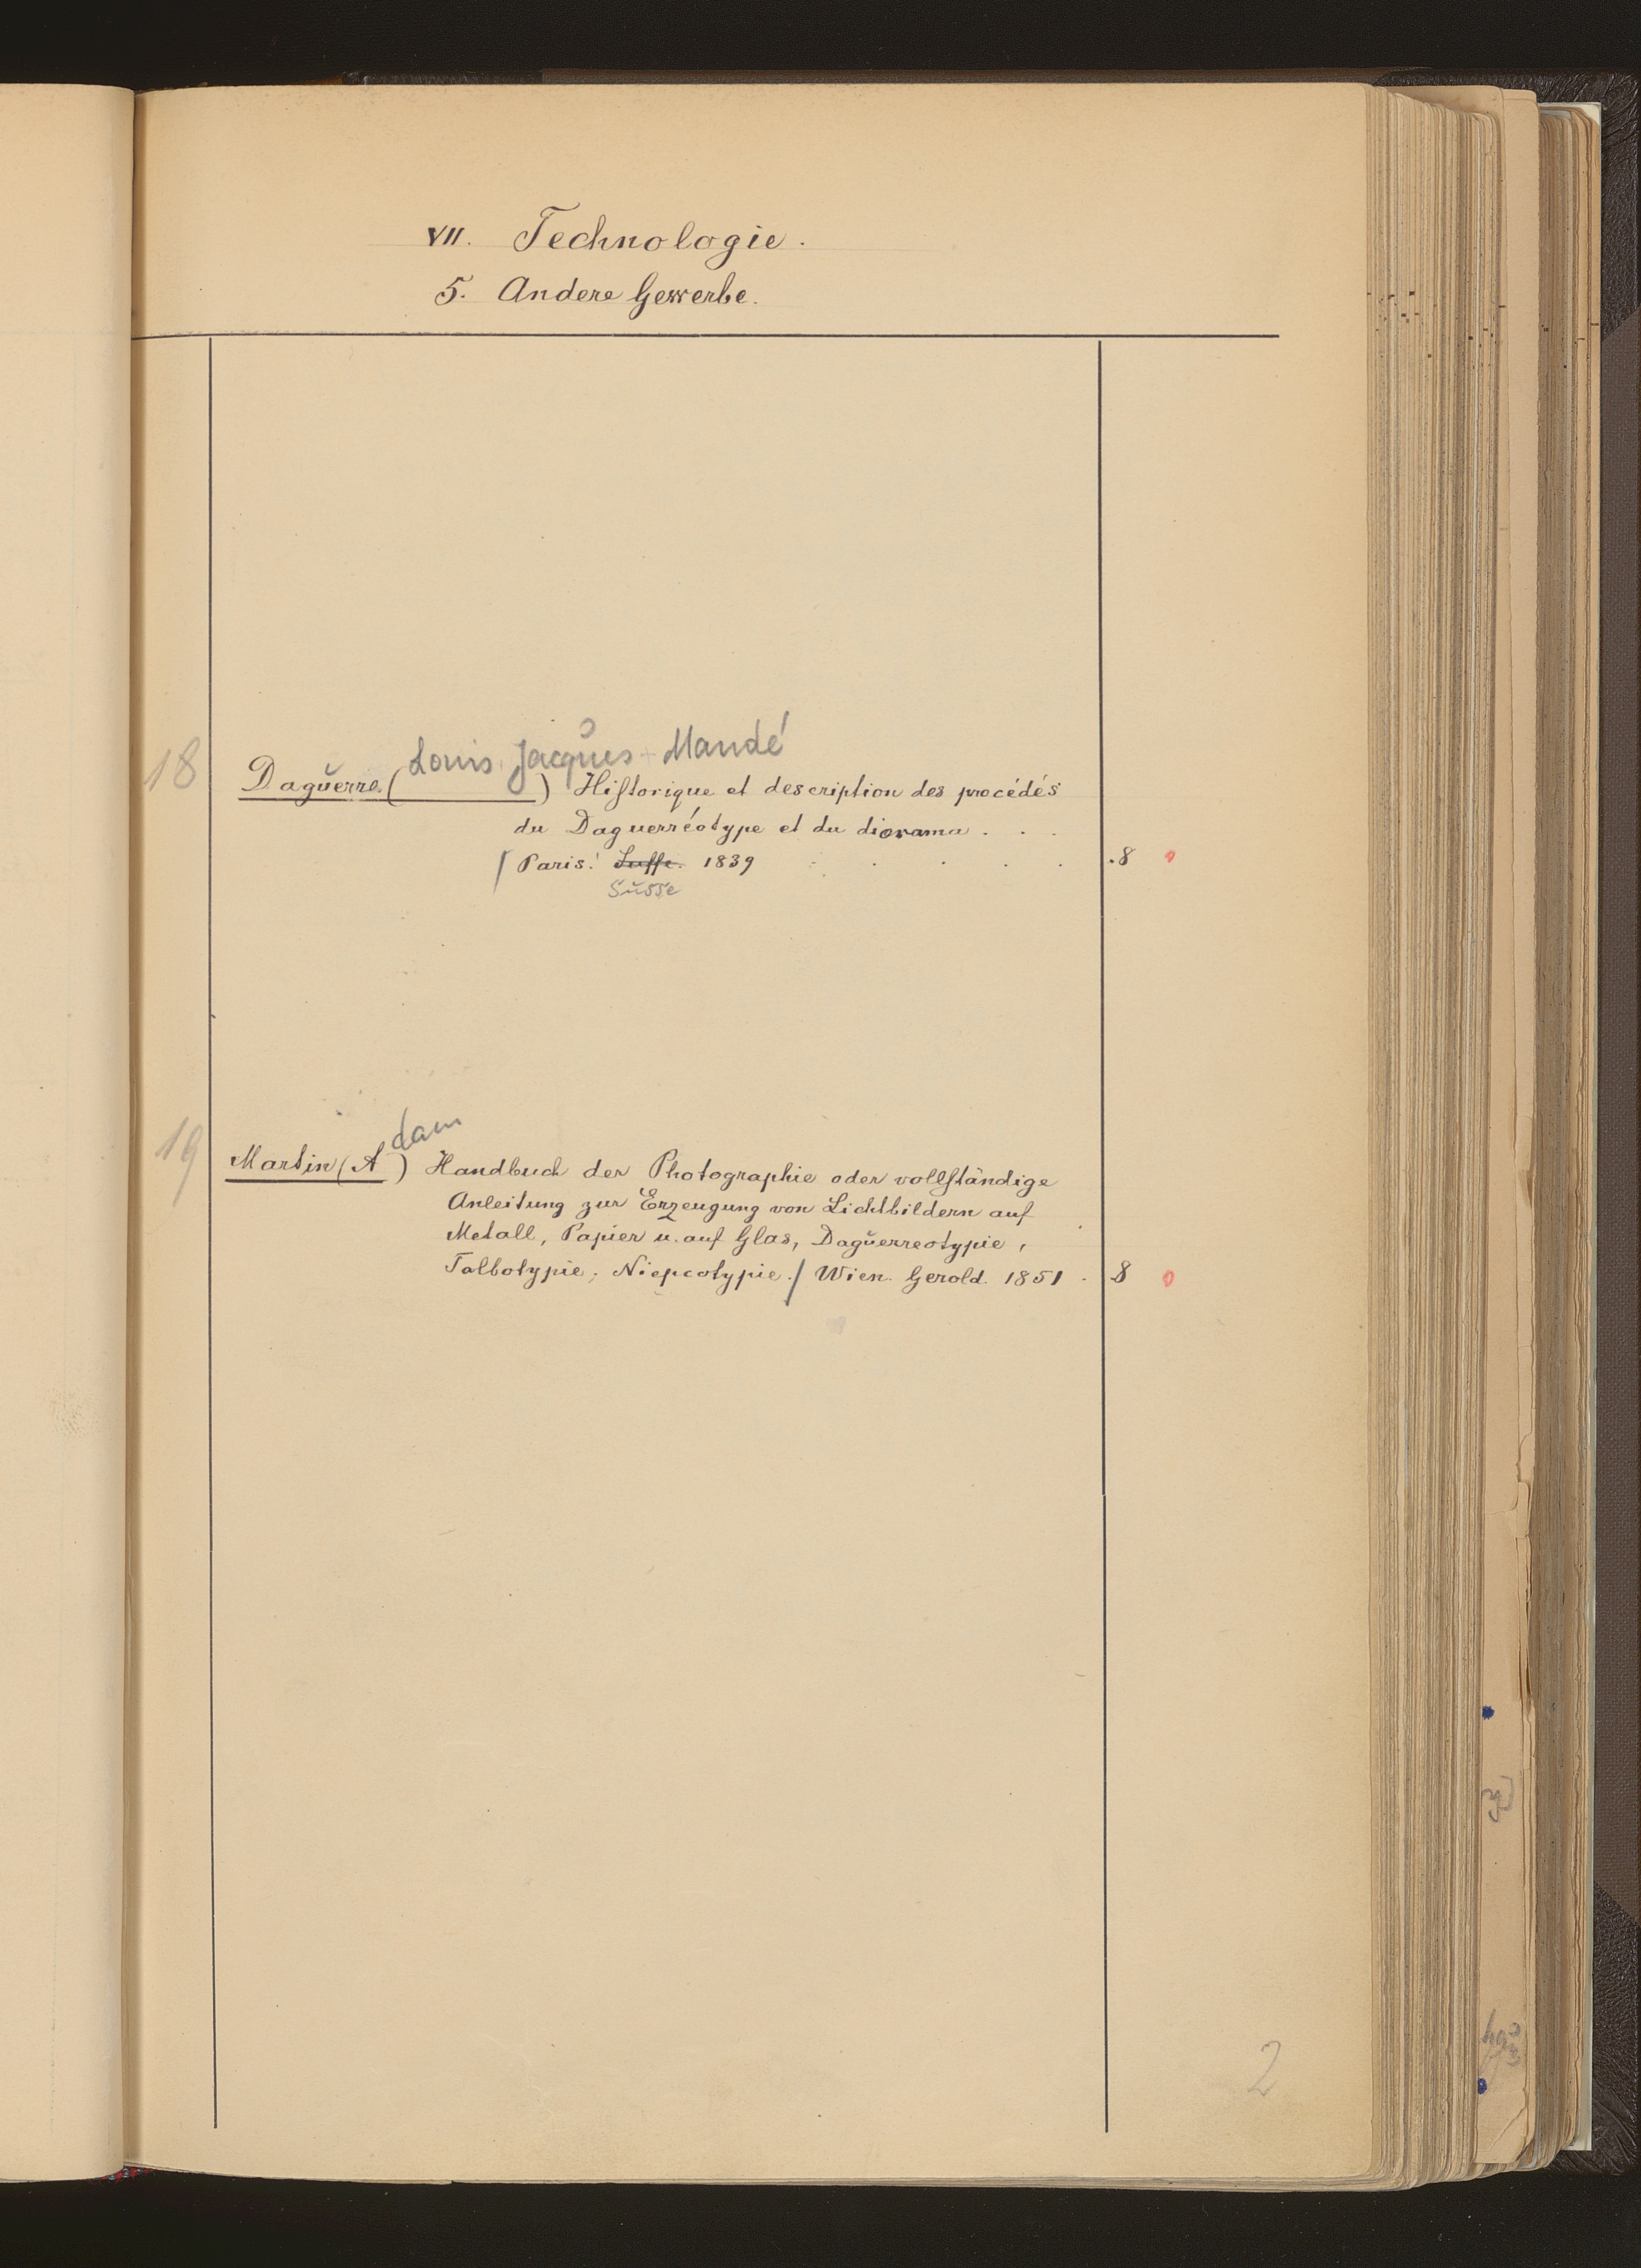 VII. Technologie.
5. Andere Gewerbe.
Louis Jacques Mandé
18
Daguerre ( ) Historique et description des procédés
du Daguerréotype et du diorama . . .
/ Paris. Suſſe. 1839 . . . . . 8 0
Susse
dam
19
Martin (A ) Handbuch der Photographie oder vollständige
Anleitung zur Erzeugung von Lichtbildern auf
Metall, Papier u. auf Glas, Daguerreotypie,
Talbotypie, Niepcotypie. / Wien. Gerold. 1851 . 8 0
2